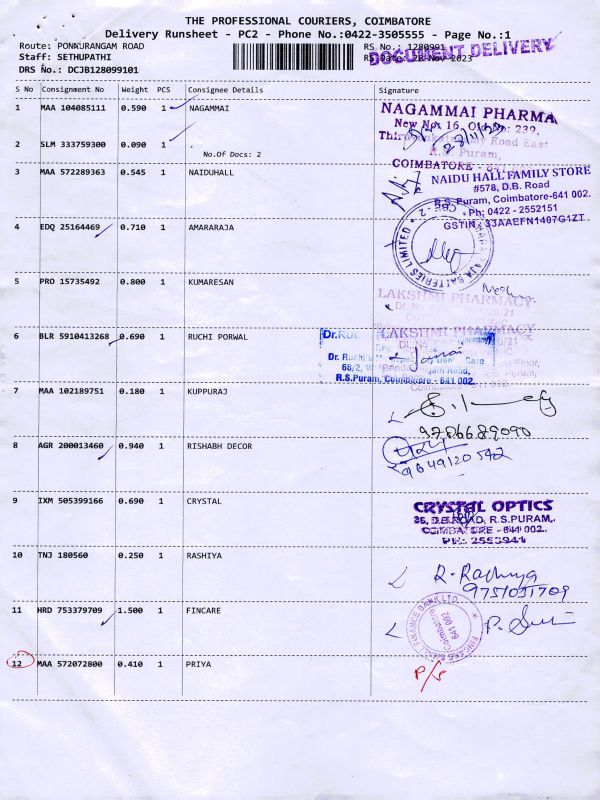 THE PROFESSIONAL COURIERS, COIMBATORE
Delivery Runsheet - PC2 - Phone No.:0422-3505555 - Page No.:1
Route: PONKURANGAM ROAD
RS No.: 1280991
Staff: SETHUPATHI
RS Date: 28 Nov 2023
DOCUMENT DELIVERY
DRS No.: DCJB128099101
S No Consignment No Weight PCS Consignee Details Signature
1 MAA 104085111 0.590 1 NAGAMMAI
NAGAMMAI PHARMA
New No 16, Old No: 239,
28/11/23
R.S. Puram,
COIMBATORE - 641
2 SLM 333759300 0.090 1
No.Of Docs: 2
3 MAA 572289363 0.545 1 NAIDUHALL
NAIDU HALL FAMILY STORE
#578, D.B. Road
R.S.Puram, Coimbatore-641 002.
Ph: 0422 - 2552151
GSTIN : 33AAEFN1407G1ZT
4 EDQ 25164469 0.710 1 AMARARAJA
BATTERIES LIMITED
5 PRO 15735492 0.800 1 KUMARESAN
LAKSHMI PHARMACY
6 BLR 5910413268 0.690 1 RUCHI PORWAL
LAKSHMI PHARMACY
R.S.Puram, Coimbatore - 641 002.
7 MAA 102189751 0.180 1 KUPPURAJ
9786689090
8 AGR 200013460 0.940 1 RISHABH DECOR
9649120542
9 IXM 505399166 0.690 1 CRYSTAL
CRYSTAL OPTICS
35, D.B.ROAD, R.S.PURAM,
COIMBATORE - 641 002.
PH: 2553941
10 TNJ 180560 0.250 1 RASHIYA
R. Rashiya
9751051709
11 HRD 753379709 1.500 1 FINCARE
FINCARE SMALL FINANCE BANK LTD
Coimbatore
641 002
12 MAA 572072800 0.410 1 PRIYA
P/S